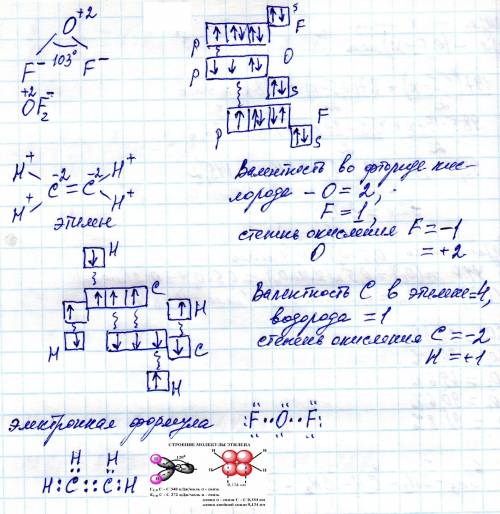 O+2
F- 103° F-
+2
OF2-
s
p F
p O
s
p F
s
H+ -2 -2 H+
C = C
H+ H+
этилен
Валентность во фториде кис-
лорода – O = 2,
F = 1,
степень окисления F = -1
O = +2
H
C
H
H
C
H
Валентность C в этилене = 4,
водорода = 1
степень окисления C = -2
H = +1
электронная формула :F··O··F:
H H
H:C::CH
СТРОЕНИЕ МОЛЕКУЛЫ ЭТИЛЕНА
120°
H H
H H
0,134 нм